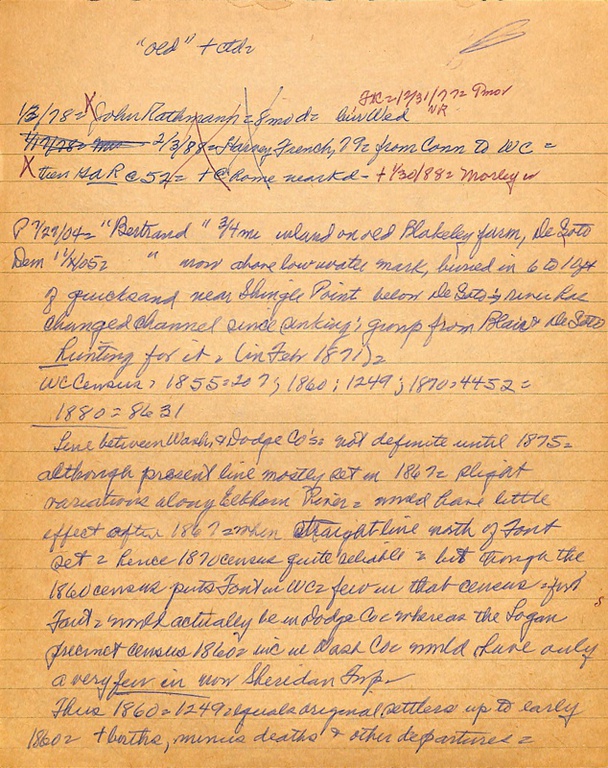 "old" + ctd=
1/3/78= X John Rathmann= 8 mo d= bur Wed
2/3/88= Harvey French, 79= from Conn to WC =
X then @ 52= + @ home neark d- + 1/30/88= Morley
P 7/29/04= "Bertrand" 3/4 mi inland on old Blakeley farm, DeSoto
Dem " now above low water mark, buried in 6 to 10 ft
of quicksand near Shingle Point below DeSoto; river has
changed channel since sinking; group from Blair & DeSoto
hunting for it = (in Feb 1871)=
WC Census= 1855=207; 1860; 1249; 1870=4452=
1880=8631
Line between Wash & Dodge Co's= not definite until 1875=
although present line mostly set in 1867= slight
variations along Elkhorn River= would have little
effect after 1867= when straight line north of Font
set= hence 1870 census quite reliable = but though the
1860 census puts Font in WC= few in that census =
Font= would actually be in Dodge Co= whereas the Logan
precinct census 1860= inc in Wash Co= would have only
a very few in now Sheridan Twp=
Thus 1860=1249= equals original settlers up to early
1860= + births, minus deaths & other departures=